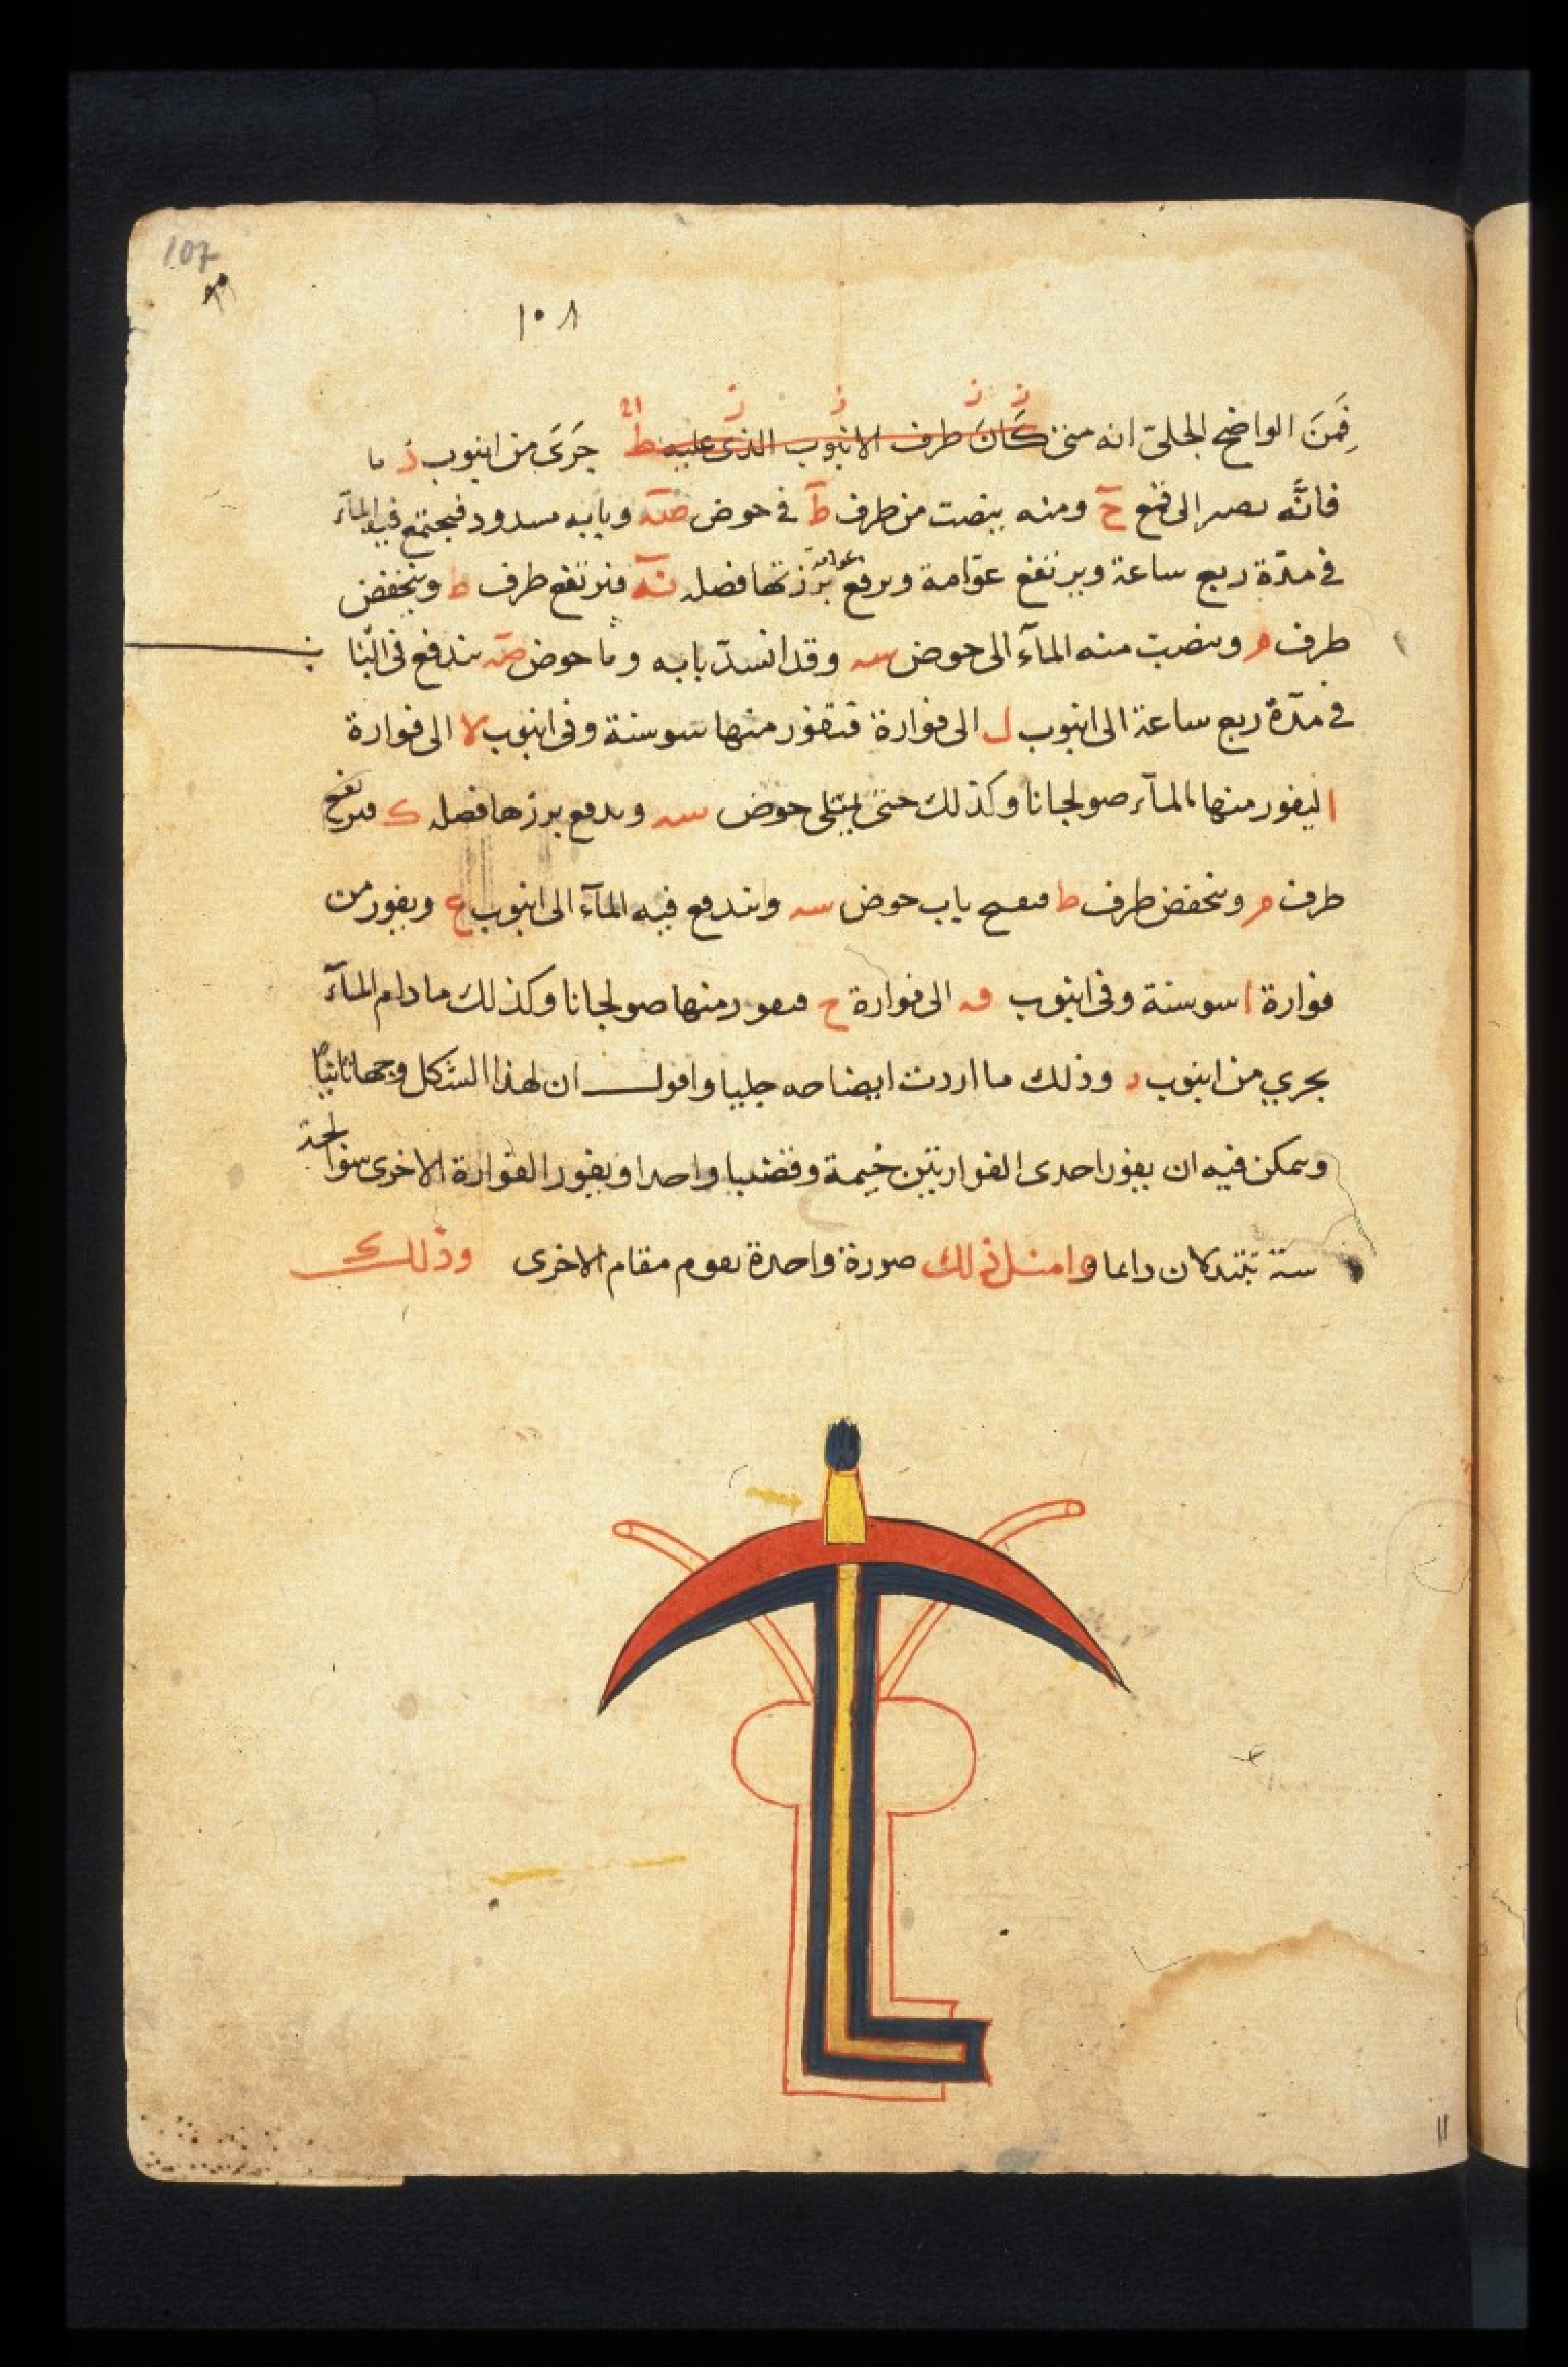 107
١٠٨
فَمِنَ الواضح الجلىّ انه متى كَانَ طرف الانبوب الذى عليه ط جَرَىَ من انبوب ز ما
فانَّه يصير الى قمع ح ومنه ينصت من طرف ط فى حوض صه وبابه مسدود فيجتمع فيه المآء
فى مدّة ربع ساعة ويرتفع عوّامة ويرفع عوامة برزتها فضله نه فيرتفع طرف ط وينخفض
طرف م وينصب منه المآء الى حوض سه وقد انسدّ بابه وما حوض صه يندفع فى الثنا
فى مدّة ربع ساعة الى انبوب ل الى فوارة فتفور منها سوسنة وفى انبوب لا الى فوارة
ا ليفور منها المآء صولجانا وكذلك حتى يمتلى حوض سه ويدفع برزها فضله ك فيرتفع
طرف م وينخفض طرف ط فيفتح باب حوض سه واندفع فيه المآء الى انبوب ع ويفور من
فوارة ا سوسنة وفى انبوب ف الى فوارة ح فيفور منها صولجانا وكذلك ما دام المآء
يجري من انبوب د وذلك ما اردت ايضاحه جليا واقول ان لهذا الشكل وجها ثانيًا
ويمكن فيه ان يفور احدى الفوارتين خيمة وقضيبا واحدا ويفور الفوارة الاخرى سوا
ستة يتبدلان دايما وامثل ذلك صورة واحدة يقوم مقام الاخرى وذلك